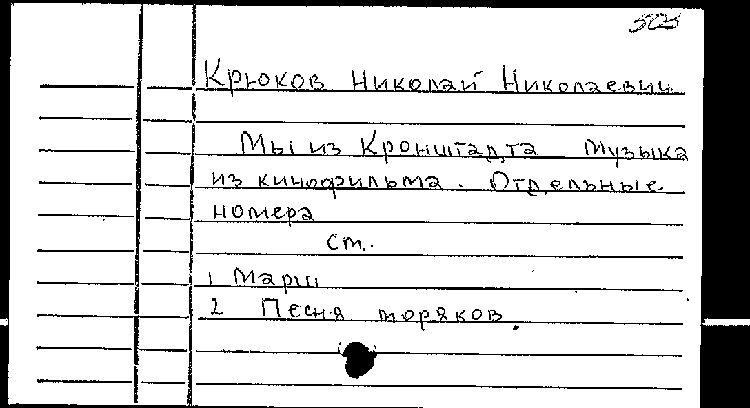 Крюков Николай Николаевич
Мы из Кронштадта Музыка
из кинофильма. Отдельные
номера
ст.
1 Марш
2 Песня моряков.